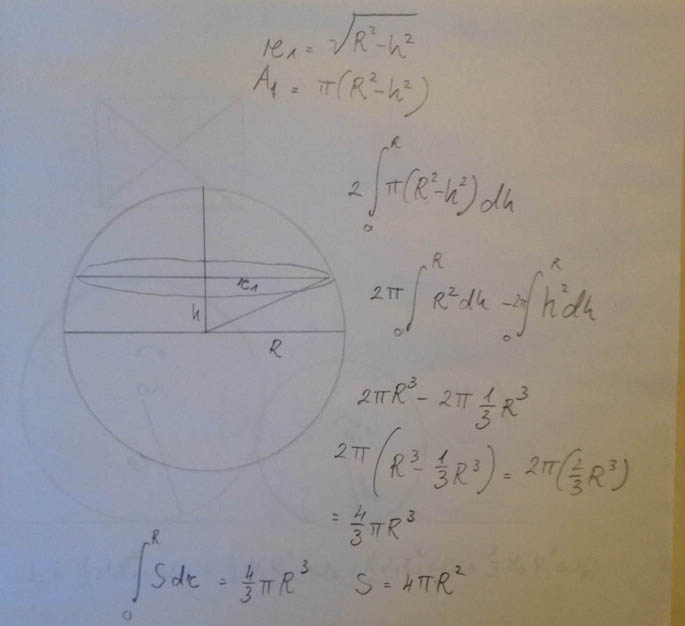 r₁ = √(R²-h²)
A₁ = π(R²-h²)
2 ∫₀ᴿ π(R²-h²) dh
r₁
h
R
2π ∫₀ᴿ R² dh - 2π ∫₀ᴿ h² dh
2πR³ - 2π 1/3 R³
2π(R³ - 1/3 R³) = 2π(2/3 R³)
= 4/3 πR³
∫₀ᴿ S dr = 4/3 πR³ S = 4πR²